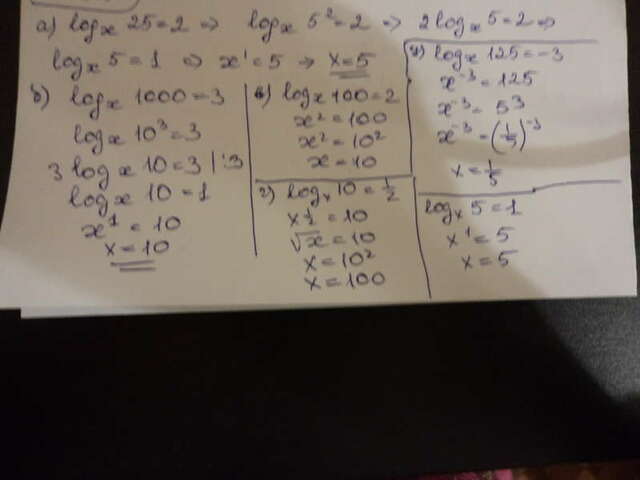 а) log_x 25=2 => log_x 5²=2 => 2log_x 5=2 =>
log_x 5=1 => x¹=5 => x=5
б) log_x 1000=3
log_x 10³=3
3 log_x 10=3 | :3
log_x 10=1
x¹=10
x=10
в) log_x 100=2
x²=100
x²=10²
x=10
г) log_x 10=1/2
x 1/2=10
√x=10
x=10²
x=100
log_x 125=-3
x⁻³=125
x⁻³=5³
x⁻³=(1/5)⁻³
x=1/5
log_x 5=1
x¹=5
x=5